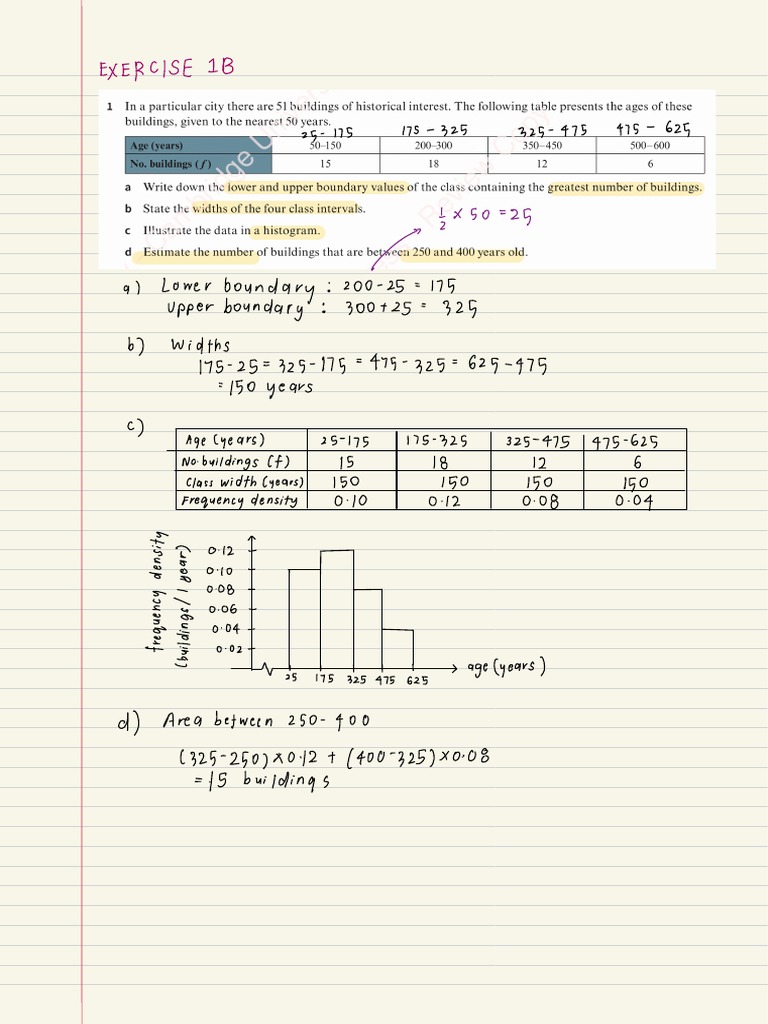 EXERCISE 1B
1 In a particular city there are 51 buildings of historical interest. The following table presents the ages of these
buildings, given to the nearest 50 years.
25-175 175-325 325-475 475-625
Age (years) 50–150 200–300 350–450 500–600
No. buildings (f) 15 18 12 6
a Write down the lower and upper boundary values of the class containing the greatest number of buildings.
b State the widths of the four class intervals.
1/2 × 50 = 25
c Illustrate the data in a histogram.
d Estimate the number of buildings that are between 250 and 400 years old.
a) Lower boundary : 200-25 = 175
Upper boundary : 300+25 = 325
b) Widths
175-25 = 325-175 = 475-325 = 625-475
= 150 years
c)
Age (years) 25-175 175-325 325-475 475-625
No.buildings (f) 15 18 12 6
Class width (years) 150 150 150 150
Frequency density 0.10 0.12 0.08 0.04
frequency density
(buildings/1 year)
0.12
0.10
0.08
0.06
0.04
0.02
25 175 325 475 625
age (years)
d) Area between 250-400
(325-250)×0.12 + (400-325)×0.08
= 15 buildings